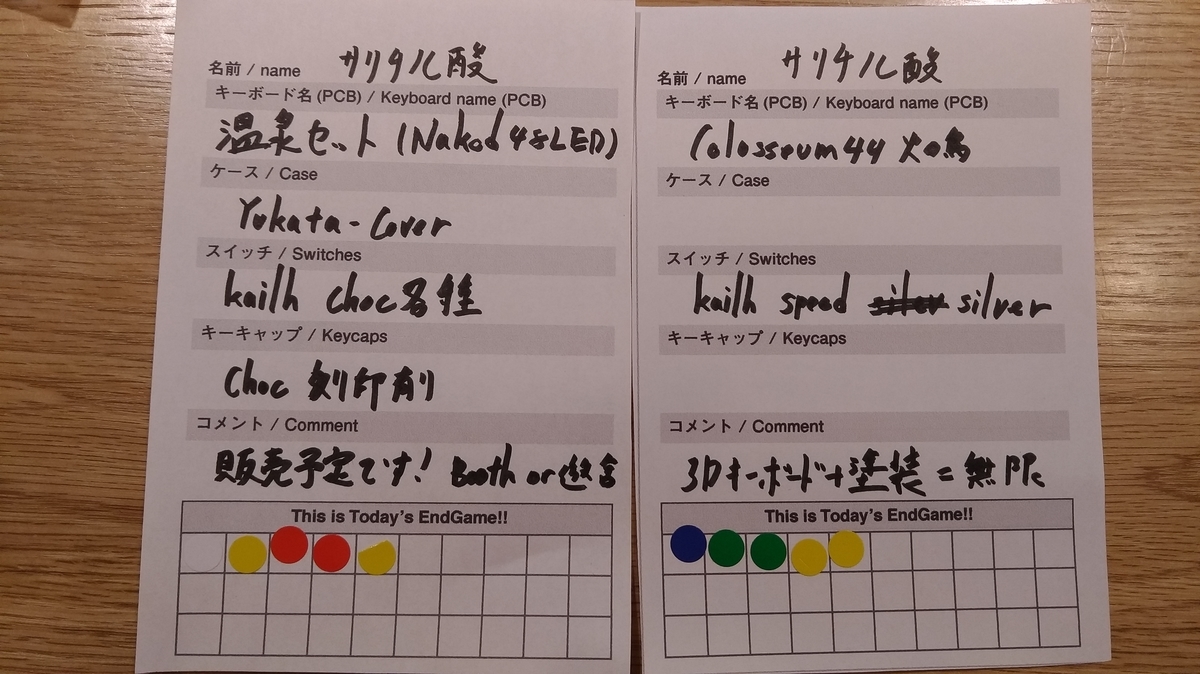 名前 / name サリチル酸
キーボード名 (PCB) / Keyboard name (PCB)
温泉セット (Naked 48LED)
ケース / Case
Yukata-Cover
スイッチ / Switches
kailh choc 各種
キーキャップ / Keycaps
Choc 刻印有り
コメント / Comment
販売予定です! Booth or 遊舎
This is Today's EndGame!!
名前 / name サリチル酸
キーボード名 (PCB) / Keyboard name (PCB)
Colosseum44 火の鳥
ケース / Case
スイッチ / Switches
kailh speed silver
キーキャップ / Keycaps
コメント / Comment
3Dキーボード+塗装=無限
This is Today's EndGame!!